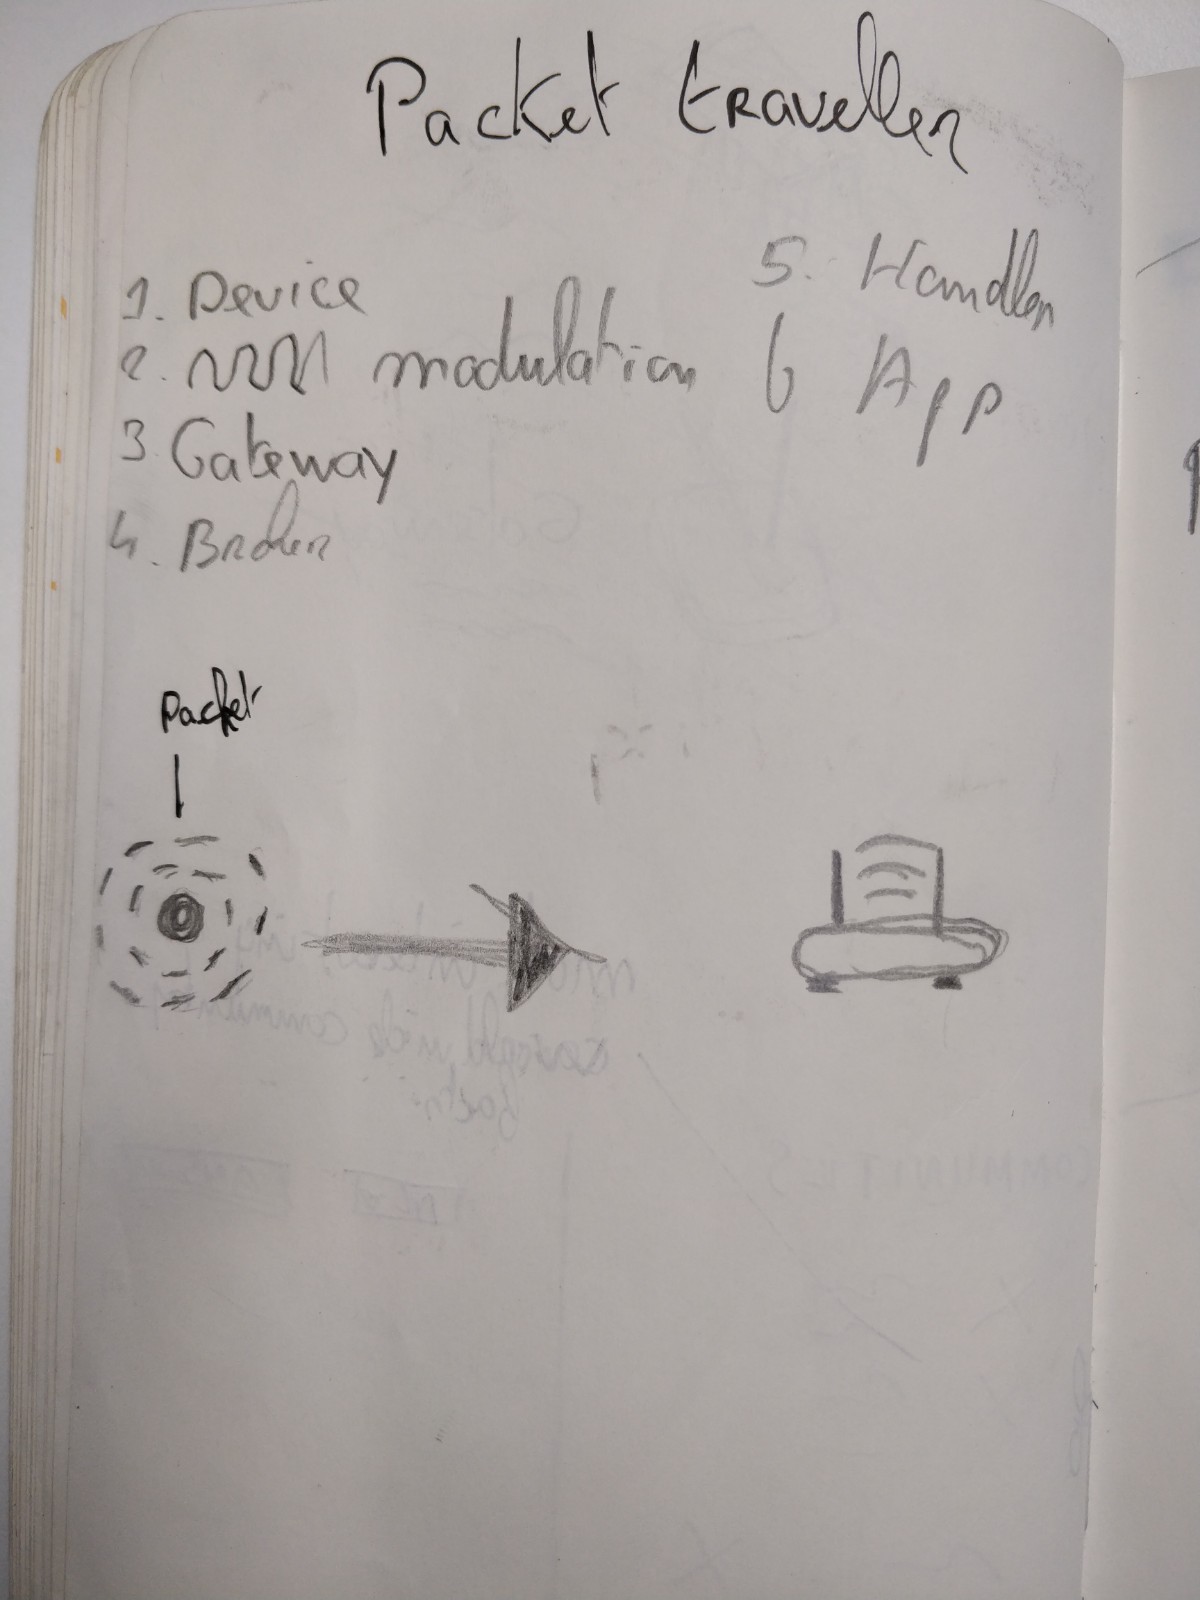 Packet traveller
1. Device
2. modulation
3. Gateway
4. Broker
5. Handler
6 App
Packet